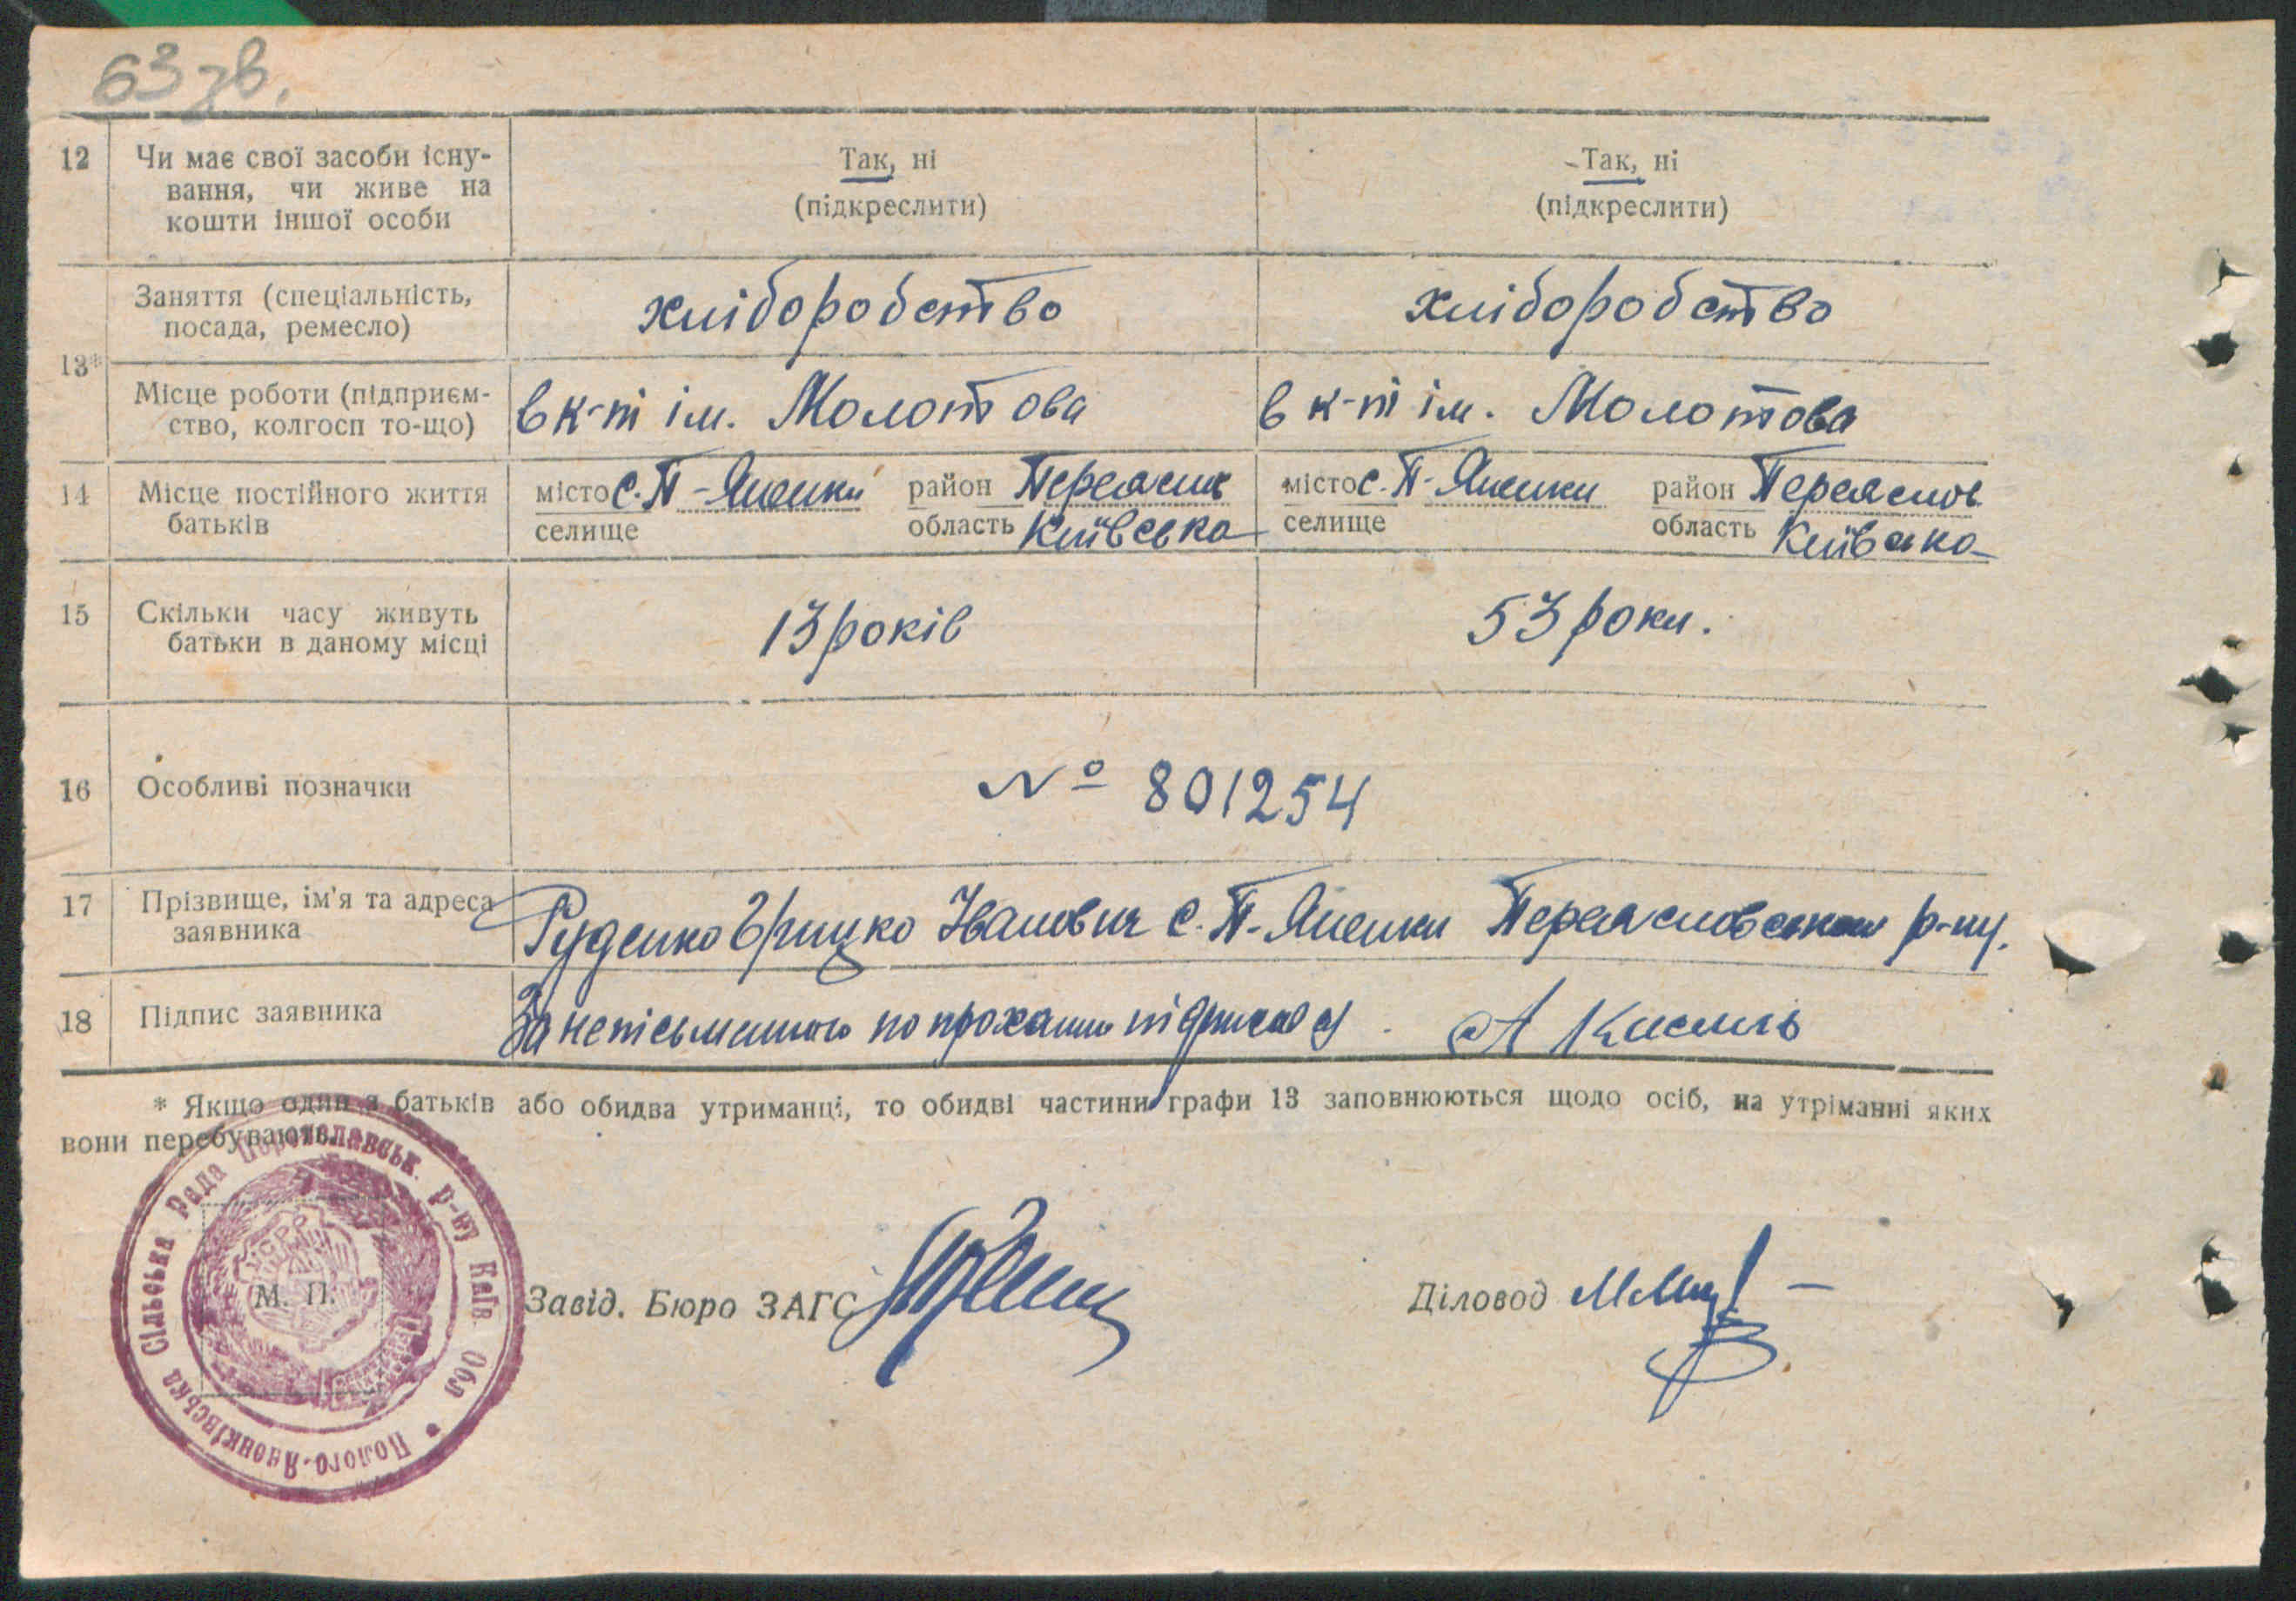 63 зв.
12 Чи має свої засоби існу- Так, ні Так, ні
вання, чи живе на (підкреслити) (підкреслити)
кошти іншої особи
13* Заняття (спеціальність, хліборобство хліборобство
посада, ремесло)
Місце роботи (підприєм- в к-пі ім. Молотова в к-пі ім. Молотова
ство, колгосп то-що)
14 Місце постійного життя місто с. П-Яненки район Переяслів місто с. П-Яненки район Переяслов
батьків селище область Київська селище область Київська
15 Скільки часу живуть 13 років 53 роки.
батьки в даному місці
16 Особливі позначки № 801254
17 Прізвище, ім'я та адреса Руденко Грицко Іванович с. П-Яненки Переясловского р-ну.
заявника
18 Підпис заявника За неписьменного по проханню підписався А Кисиль
* Якщо один з батьків або обидва утриманці, то обидві частини графи 13 заповнюються щодо осіб, на утріманні яких
вони перебувають.
Полого-Яненківська Сільська Рада Переяславськ. р-ну Київ. Обл
У.С.Р.Р.
М. П.
Завід. Бюро ЗАГС
Діловод